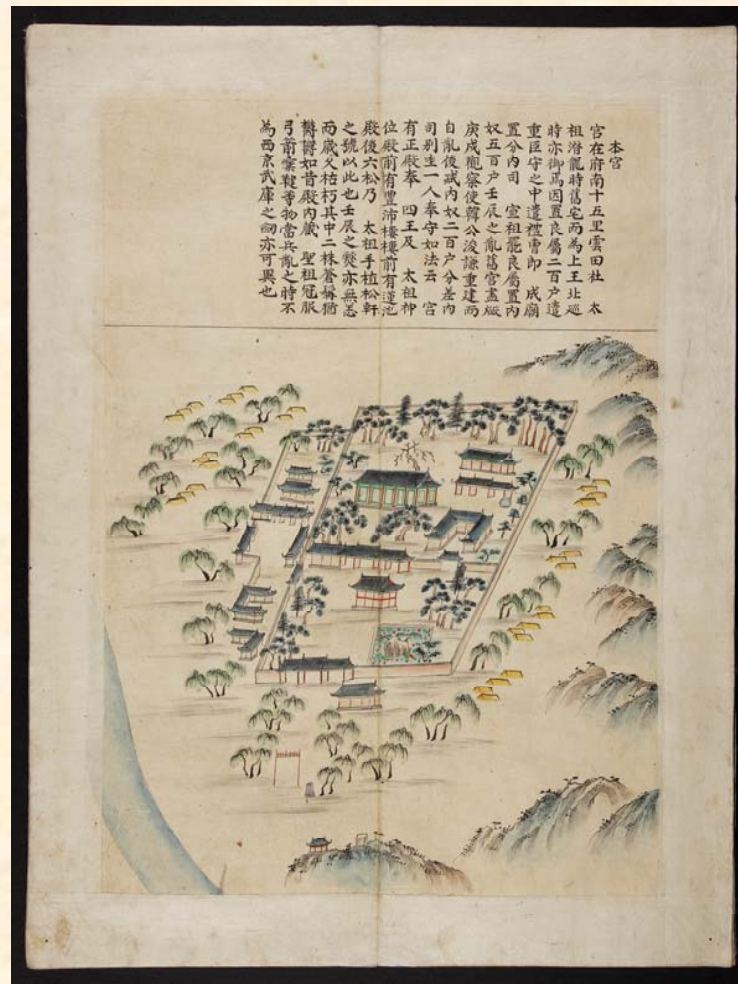 本宮
宮在府南十五里雲田社 太
祖潛龍時舊宅而為上王北廵
時亦御焉因置良屬二百户遣
重臣守之中遣禮曹郎 成廟
置分內司 宣祖罷良屬置內
奴五百户壬辰之亂舊宮盡燬
庚戌觀察使韓公浚謙重建而
自亂後減內奴二百户分差內
司別坐一人奉守如法云 宮
有正殿奉 四王及 太祖神
位殿前有豊沛樓樓前有蓮池
殿後六松乃 太祖手植松軒
之號以此也壬辰之燹亦無恙
而歲久枯朽其中二株蒼髯猶
欝欝如昔殿內藏 聖祖冠服
弓箭櫜鞬等物當兵亂之時不
為西京武庫之劒亦可異也